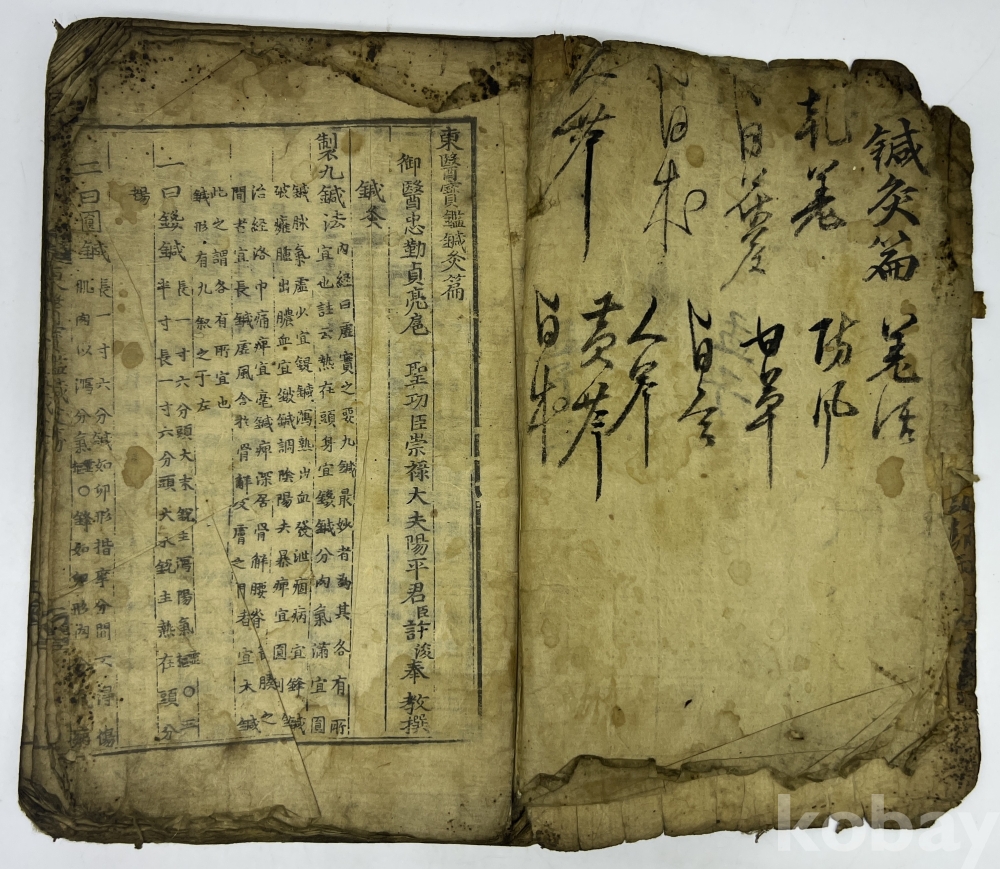 鍼灸篇 羌活
防風
甘草
白朮
人參
黃芩
白朮
東醫寶鑑鍼灸篇
御醫忠勤貞亮扈 聖功臣崇祿大夫陽平君臣許浚奉 教撰
鍼灸
製九鍼法 內經曰虛實之要九鍼最妙者爲其各有所
宜也註云熱在頭身宜鑱鍼分肉氣滿宜圓
鍼脉氣虛少宜鍉鍼瀉熱出血發泄痼病宜鋒鍼
破癰腫出膿血宜鈹鍼調陰陽去暴痺宜圓利鍼
治經絡中痛痺宜毫鍼痺深居骨解腰脊節腠之
間者宜長鍼虛風舍於骨解皮膚之間者宜大鍼
此之謂各有所宜也
鍼形有九叙之于左
一曰鑱鍼 長一寸六分頭大末銳主瀉陽氣○三
半寸長一寸六分頭大末銳主熱在頭分
二曰圓鍼 長一寸六分鍼如卵形揩摩分間不得傷
肌肉以瀉分氣○鋒如卵形
kobay